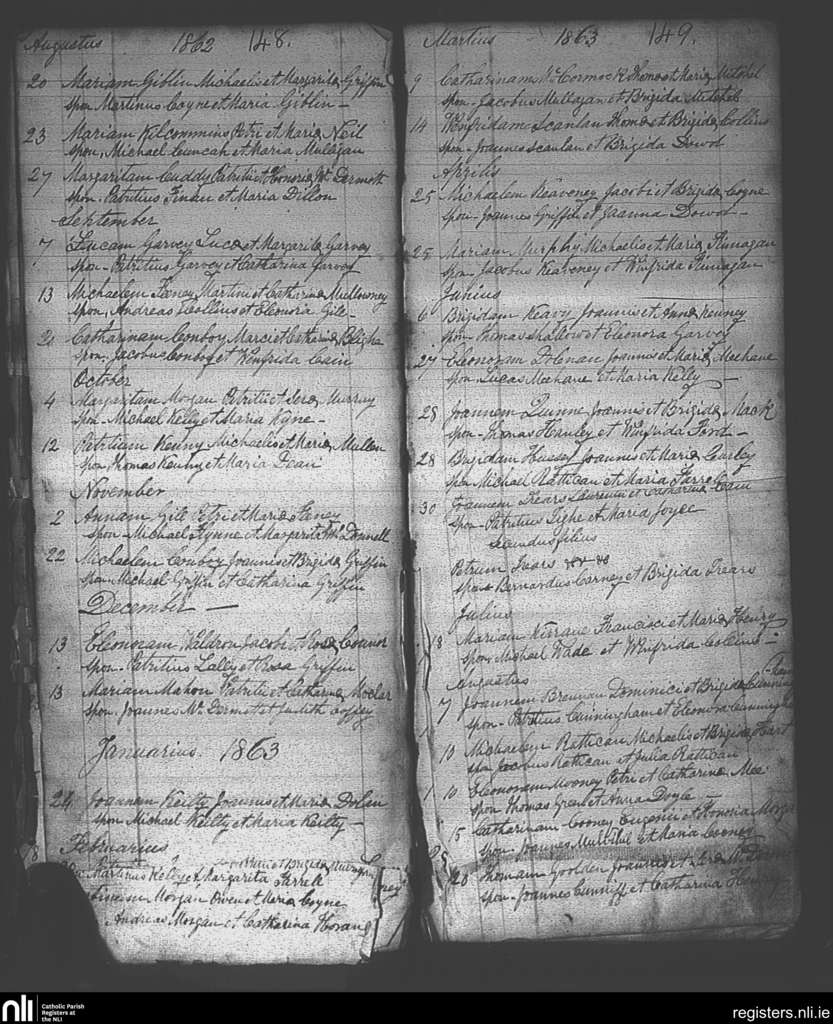 Augustus 1862 148.
20 Mariam Giblin Michaelis et Margarita Griffin
spon Martinus Coyne et Maria Giblin
23 Mariam Kilcommins Petri et Maria Neil
spon. Michael Cuncah et Maria Mullagan
27 Margaritam Cuddy Patritii et Honoria McDermott
spon. Patritius Finan et Maria Dillon
September
7 Lucam Garvey Luca et Margarita Garvey
spon - Patritius Garvey et Catharina Garvey
13 Michaelem Feeney Martini et Catharina Mullowney
spon. Andreas Collins et Eleonora Gill -
21 Catharinam Conboy Marci et Catharina Bligha
spon. Jacobus Conboy et Winfrida Cain
October
4 Margaritam Morgan Patritii et Sera Murray
spon - Michael Kelly et Maria Kyne -
12 Patritium Kenny Michaelis et Maria Mullen
spon. Thomas Kenny et Maria Dean
November
2 Annam Gill Petri et Maria Feeney
spon - Michael Flynne et Margarita McDonnell
22 Michaelem Conboy Joannis et Brigida Griffin
spon - Michael Griffin et Catharina Griffin
December -
13 Eleonoram Waldron Jacobi et Rosa Connor
spon - Patritius Lally et Rosa Griffin
13 Mariam Mahon Patritii et Catharina
spon. Joannes McDermott et Judith Coffey
Januarius. 1863
24 Joannem Keilty Joannis et Maria Dolan
spon Michael Keilty et Maria Keilty -
Februarius
et Brigida
Martinus Kelly et Margarita Farrell
Morgan Owen et Maria Coyne
Andreas Morgan et Catharina Horan
Martius - 1863 149.
9 Catharinam McCormock Thoma et Maria Mitchel
spon - Jacobus Mullagan et Brigida Mitchel
14 Winfridam Scanlan Thoma et Brigida Collins
spon - Joannes Scanlan et Brigida Dowd
Aprilis
25 Michaelem Keaveney Jacobi et Brigida Coyne
spon - Joannes Griffin et Joanna Dowd -
25 Mariam Murphy Michaelis et Maria Flanagan
spon Jacobus Keaveney et Winfrida Flanagan
Junius
6 Brigidam Keavy Joannis et Anna Kenney
spon - Thomas Shallow et Eleonora Garvey
27 Eleonoram Joannis et Maria Meehane
spon - Lucas Meehane et Maria Kelly -
28 Joannem Quinne Joannis et Brigida Mack
spon - Thomas Hanley et Winfrida Ford -
28 Brigidam Hussey Joannis et Maria Curley
spon Michael Rattican et Maria Farrell
30 Joannem Frears Laurentii et Catharina Cain
spon - Patritius Tighe et Maria Joyce
secundus filius
Petrum Frears
spon - Bernardus Carney et Brigida Frears
Julius
18 Mariam Kirrane Francisci et Maria Henry
spon. Michael Wade et Winfrida Collins -
Augustus
7 Joannem Brennan Dominici et Brigida Cunningham
spon - Patritius Cunningham et Eleonora Cunningham
10 Michaelem Rattican Michaelis et Brigida Hart
spon Jacobus Rattican et Julia Rattican
10 Eleonoram Mooney Petri et Catharina Mee
spon Thomas Grealy et Anna Doyle -
15 Catharinam Cooney Eugenii et Honoria Morgan
spon - Joannes Mulvihil et Maria Cooney
26 Thomam Goolden Joannis et
spon - Joannes Cunniff et Catharina
nli Catholic Parish
Registers at
the NLI
registers.nli.ie